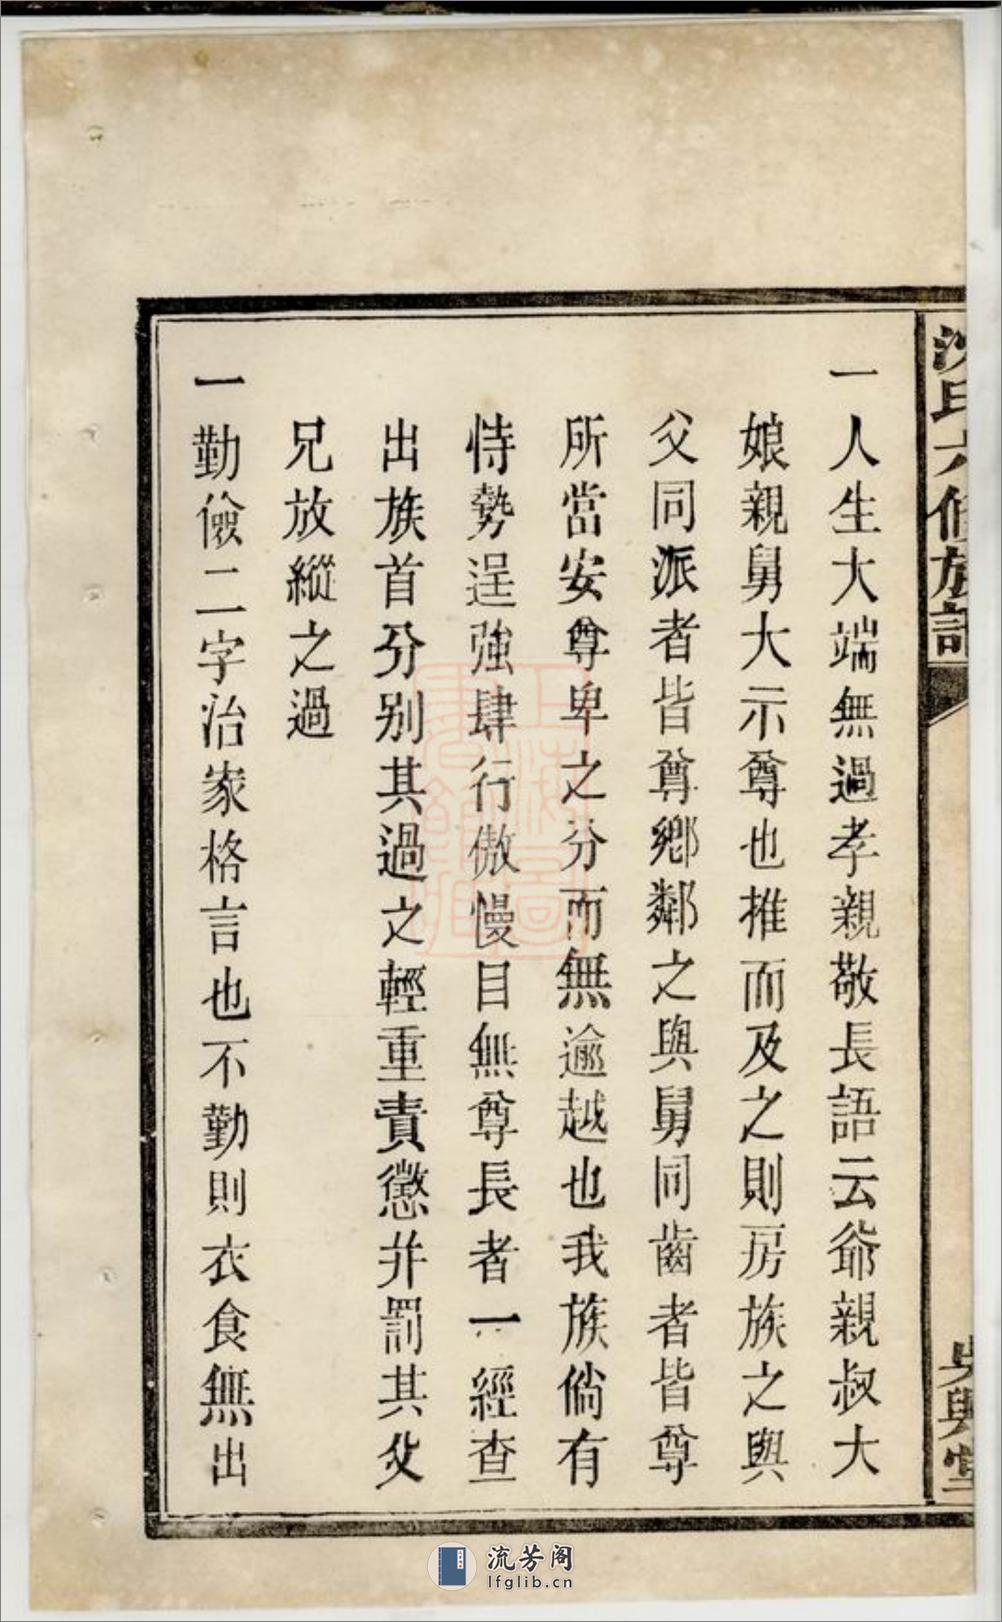 沈氏六修族譜
吳興堂
一人生大端無過孝親敬長語云爺親叔大
娘親舅大示尊也推而及之則房族之與
父同派者皆尊鄉鄰之與舅同齒者皆尊
所當安尊卑之分而無逾越也我族倘有
恃勢逞強肆行傲慢目無尊長者一經查
出族首分别其過之輕重責懲并罰其父
兄放縱之過
一勤儉二字治家格言也不勤則衣食無出
流芳阁
lfglib.cn